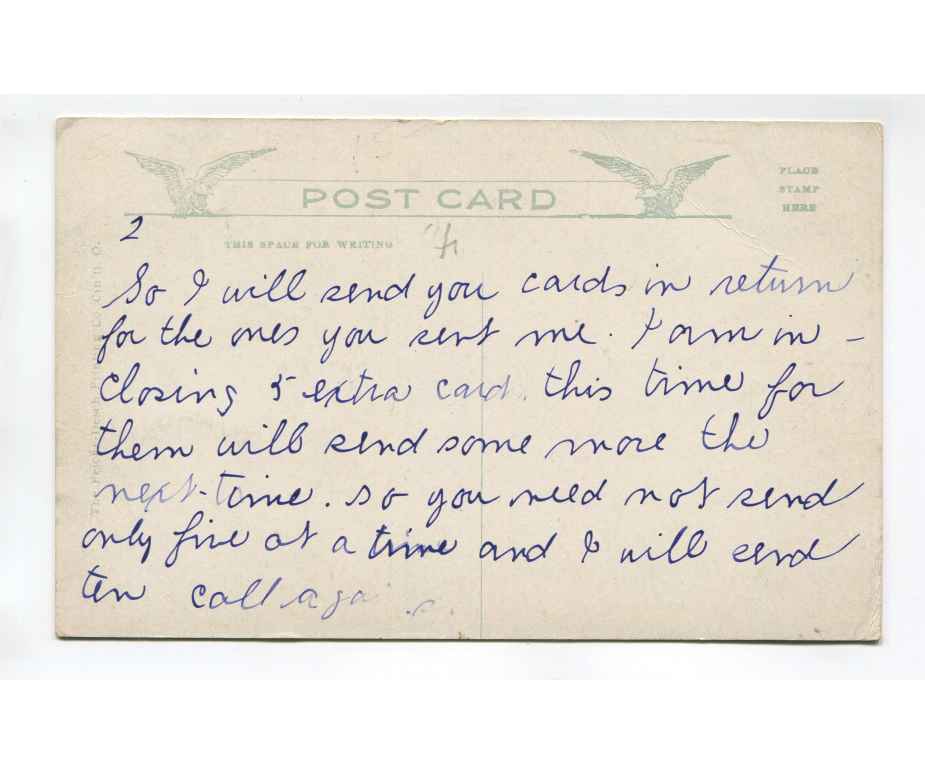 POST CARD
PLACE
STAMP
HERE
2
THIS SPACE FOR WRITING
So I will send you cards in return
for the ones you sent me. I am in -
closing 5 extra card this time for
them will send some more the
next time. so you need not send
only five at a time and I will send
ten call